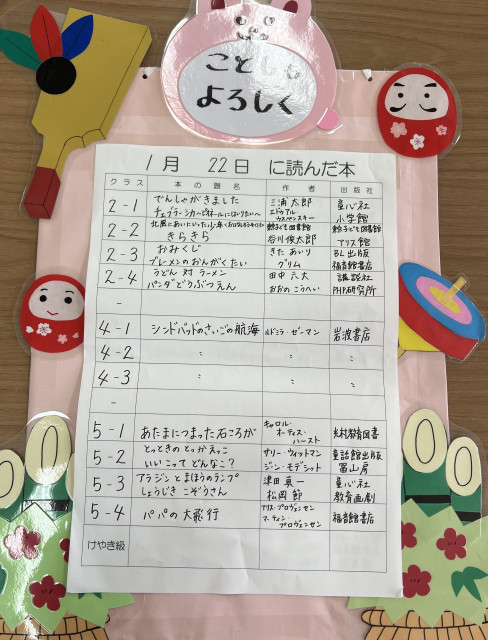 ことしも
よろしく
1月 22日 に読んだ本
クラス 本の題名 作者 出版社
2-1 でんしゃがきました 三浦太郎 童心社
チェブラーシカ エドゥアル・ウスペンスキー 小学館
2-2 鈴木出版
きらきら 谷川俊太郎 アリス館
2-3 おみくじ きたあいり BL出版
ブレーメンのおんがくたい グリム 福音館書店
2-4 うどん対ラーメン 田中六大 講談社
パンダどうぶつえん おおのこうへい PHP研究所
-
4-1 シンドバッドのさいごの航海 ルドミラ・ゼーマン 岩波書店
4-2 〃 〃 〃
4-3 〃 〃 〃
-
5-1 あたまにつまった石ころが キャロル・オーティス・ハースト 光村教育図書
5-2 とっときのとっかえっこ サリー・ウィットマン 童話館出版
いいこってどんなこ? ジーン・モデシット 冨山房
5-3 アラジンとまほうのランプ 津田真一 童心社
しょうじきこぞうさん 松岡節 教育画劇
5-4 パパの大飛行 アリス・プロヴェンセン マーティン・プロヴェンセン 福音館書店
けやき級